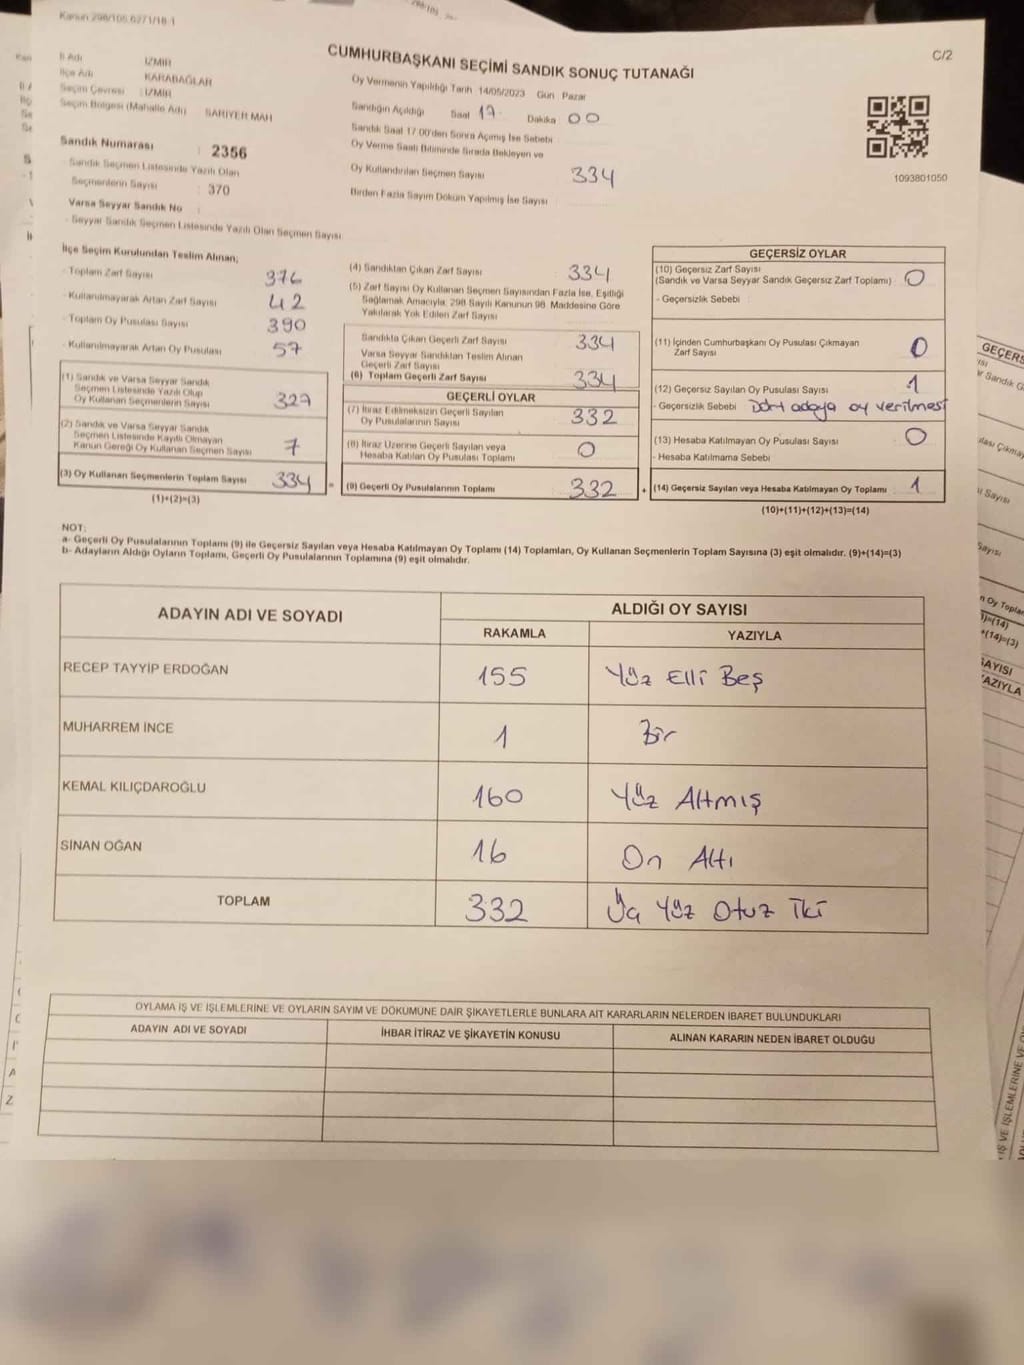 Kanun 298/105.6271/18-1
C/2
CUMHURBAŞKANI SEÇİMİ SANDIK SONUÇ TUTANAĞI
İl Adı İZMİR
İlçe Adı KARABAĞLAR
Seçim Çevresi : İZMİR
Seçim Bölgesi (Mahalle Adı) SARIYER MAH
Sandık Numarası : 2356
- Sandık Seçmen Listesinde Yazılı Olan
Seçmenlerin Sayısı : 370
Varsa Seyyar Sandık No :
- Seyyar Sandık Seçmen Listesinde Yazılı Olan Seçmen Sayısı
Oy Vermenin Yapıldığı Tarih 14/05/2023 Gün Pazar
Sandığın Açıldığı Saat 17 Dakika 00
Sandık Saat 17.00'den Sonra Açmış İse Sebebi
Oy Verme Saati Bitiminde Sırada Bekleyen ve
Oy Kullandırılan Seçmen Sayısı 334
Birden Fazla Sayım Döküm Yapılmış İse Sayısı
1093801050
İlçe Seçim Kurulundan Teslim Alınan;
- Toplam Zarf Sayısı 376
- Kullanılmayarak Artan Zarf Sayısı 42
- Toplam Oy Pusulası Sayısı 390
- Kullanılmayarak Artan Oy Pusulası 57
(1) Sandık ve Varsa Seyyar Sandık
Seçmen Listesinde Yazılı Olup
Oy Kullanan Seçmenlerin Sayısı 327
(2) Sandık ve Varsa Seyyar Sandık
Seçmen Listesinde Kayıtlı Olmayan
Kanun Gereği Oy Kullanan Seçmen Sayısı 7
(3) Oy Kullanan Seçmenlerin Toplam Sayısı 334 =
(1)+(2)=(3)
(4) Sandıktan Çıkan Zarf Sayısı 334
(5) Zarf Sayısı Oy Kullanan Seçmen Sayısından Fazla İse, Eşitliği
Sağlamak Amacıyla, 298 Sayılı Kanunun 98. Maddesine Göre
Yakılarak Yok Edilen Zarf Sayısı
Sandıkta Çıkan Geçerli Zarf Sayısı 334
Varsa Seyyar Sandıktan Teslim Alınan
Geçerli Zarf Sayısı
(6) Toplam Geçerli Zarf Sayısı 334
GEÇERLİ OYLAR
(7) İtiraz Edilmeksizin Geçerli Sayılan
Oy Pusulalarının Sayısı 332
(8) İtiraz Üzerine Geçerli Sayılan veya
Hesaba Katılan Oy Pusulası Toplamı 0
(9) Geçerli Oy Pusulalarının Toplamı 332 +
GEÇERSİZ OYLAR
(10) Geçersiz Zarf Sayısı
(Sandık ve Varsa Seyyar Sandık Geçersiz Zarf Toplamı) 0
- Geçersizlik Sebebi :
(11) İçinden Cumhurbaşkanı Oy Pusulası Çıkmayan
Zarf Sayısı 0
(12) Geçersiz Sayılan Oy Pusulası Sayısı 1
- Geçersizlik Sebebi Dört adaya oy verilmesi
(13) Hesaba Katılmayan Oy Pusulası Sayısı 0
- Hesaba Katılmama Sebebi
(14) Geçersiz Sayılan veya Hesaba Katılmayan Oy Toplamı 1
(10)+(11)+(12)+(13)=(14)
NOT:
a- Geçerli Oy Pusulalarının Toplamı (9) ile Geçersiz Sayılan veya Hesaba Katılmayan Oy Toplamı (14) Toplamları, Oy Kullanan Seçmenlerin Toplam Sayısına (3) eşit olmalıdır. (9)+(14)=(3)
b- Adayların Aldığı Oyların Toplamı, Geçerli Oy Pusulalarının Toplamına (9) eşit olmalıdır.
ADAYIN ADI VE SOYADI ALDIĞI OY SAYISI
RAKAMLA YAZIYLA
RECEP TAYYİP ERDOĞAN 155 Yüz Elli Beş
MUHARREM İNCE 1 Bir
KEMAL KILIÇDAROĞLU 160 Yüz Altmış
SİNAN OĞAN 16 On Altı
TOPLAM 332 Üç Yüz Otuz İki
OYLAMA İŞ VE İŞLEMLERİNE VE OYLARIN SAYIM VE DÖKÜMÜNE DAİR ŞİKAYETLERLE BUNLARA AİT KARARLARIN NELERDEN İBARET BULUNDUKLARI
ADAYIN ADI VE SOYADI İHBAR İTİRAZ VE ŞİKAYETİN KONUSU ALINAN KARARIN NEDEN İBARET OLDUĞU